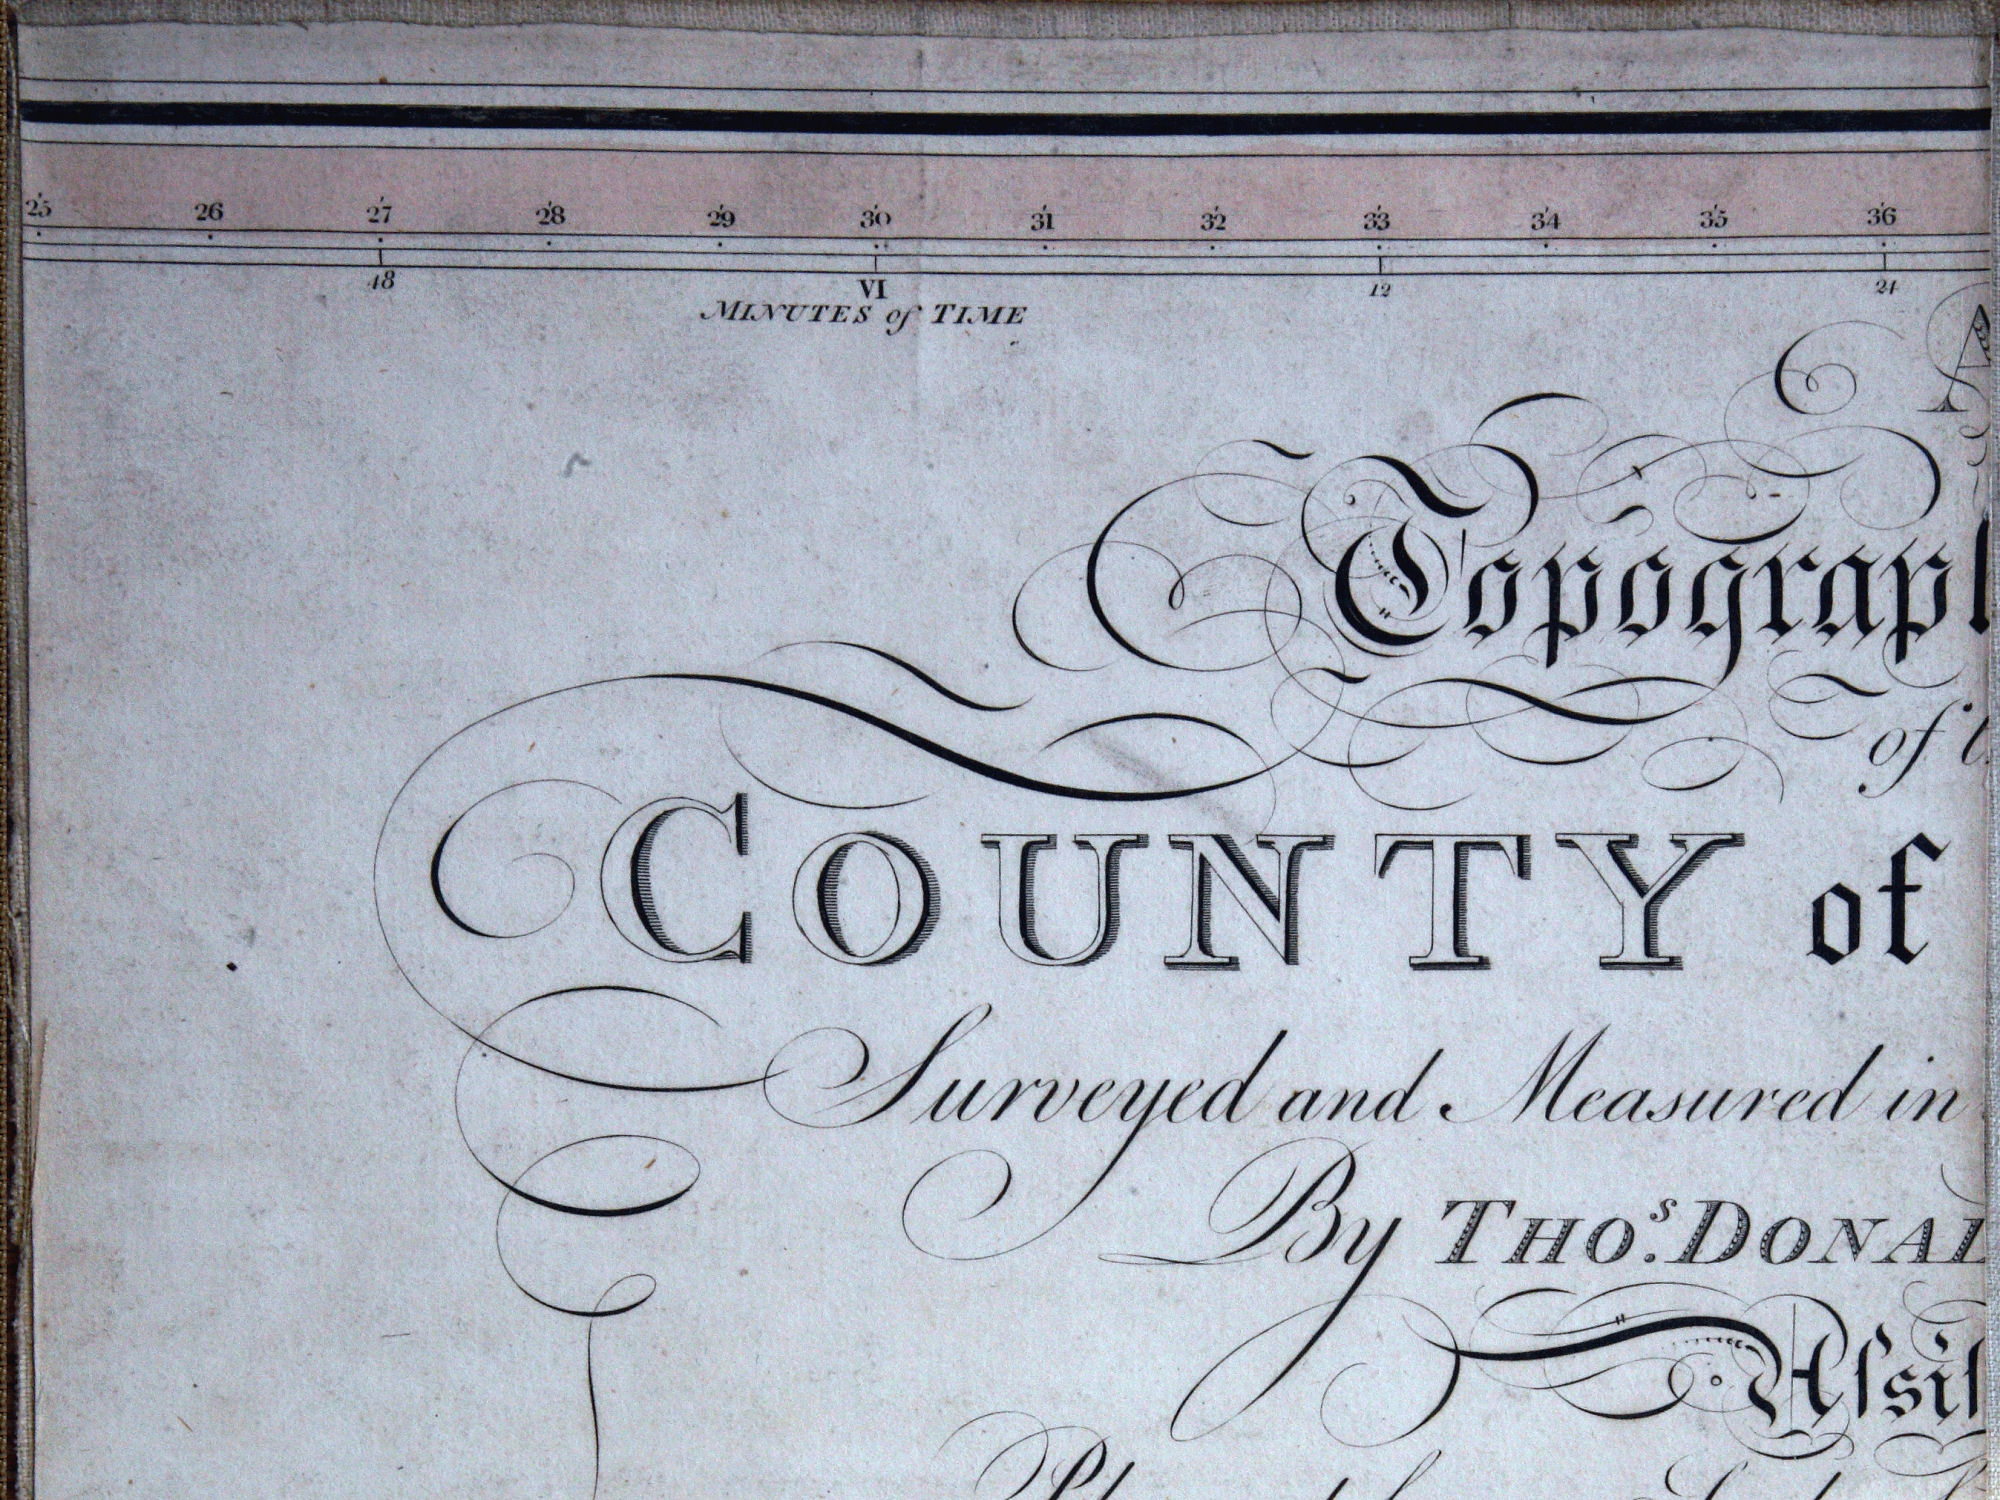 25 26 27 28 29 30 31 32 33 34 35 36
48 VI 12 24
MINUTES of TIME
A
Topograph
of t
COUNTY of
Surveyed and Measured in
By THO.S DONAL
Assis